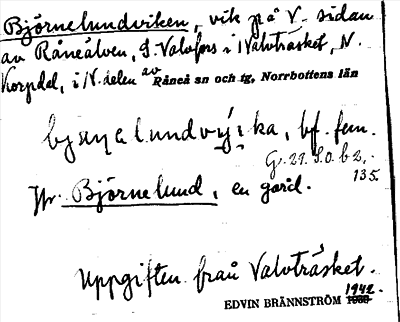 Björnelundviken, vik på V. sidan
av Råneälven, S. Valvfors i Valvträsket, N.
Korpdel, i N. delen av Råneå sn och tg, Norrbottens län
byænelundvýika, bf. fem.
G. 21. S.O. b 2,.
135.
Jfr. Björnelund, en gård.
Uppgiften från Valvträsket.
1942.
EDVIN BRÄNNSTRÖM